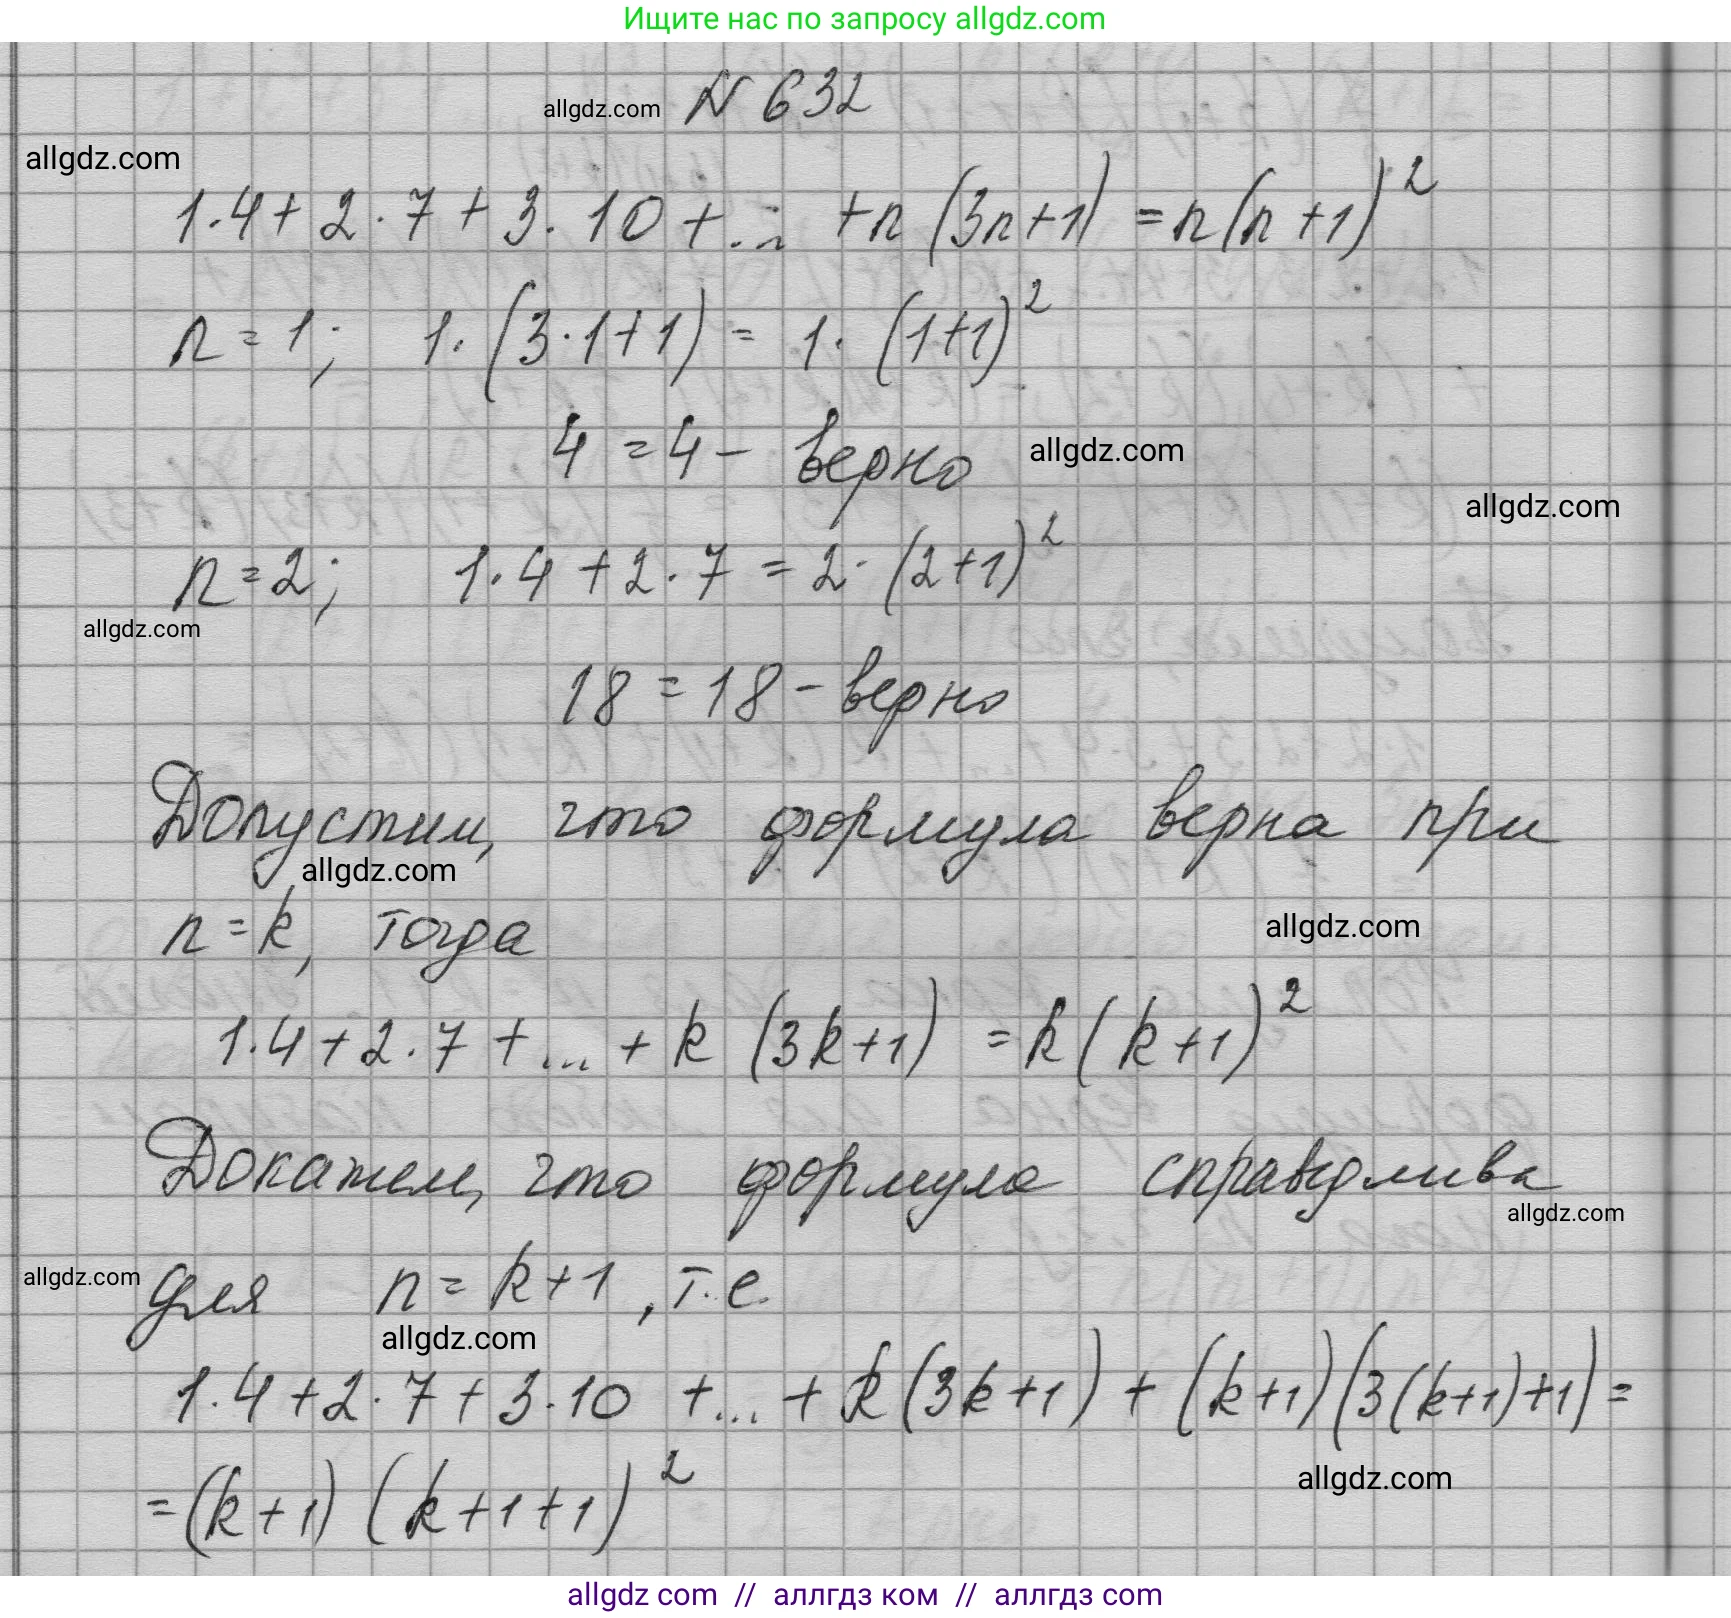 Ищите нас по запросу allgdz.com
allgdz.com N 632
allgdz.com
1·4+2·7+3·10+... +n(3n+1) =n(n+1)²
n=1; 1·(3·1+1) = 1·(1+1)²
4=4 – верно allgdz.com
allgdz.com
n=2; 1·4+2·7=2·(2+1)²
allgdz.com
18=18 – верно
Допустим, что формула верна при
allgdz.com
n=k, тогда allgdz.com
1·4+2·7+...+k(3k+1) =k(k+1)²
Докажем, что формула справедлива
allgdz.com
allgdz.com для n=k+1, т.е.
allgdz.com
1·4+2·7+3·10 +...+k(3k+1)+(k+1)(3(k+1)+1)=
allgdz.com
=(k+1)(k+1+1)²
allgdz com // аллгдз ком // аллгдз com